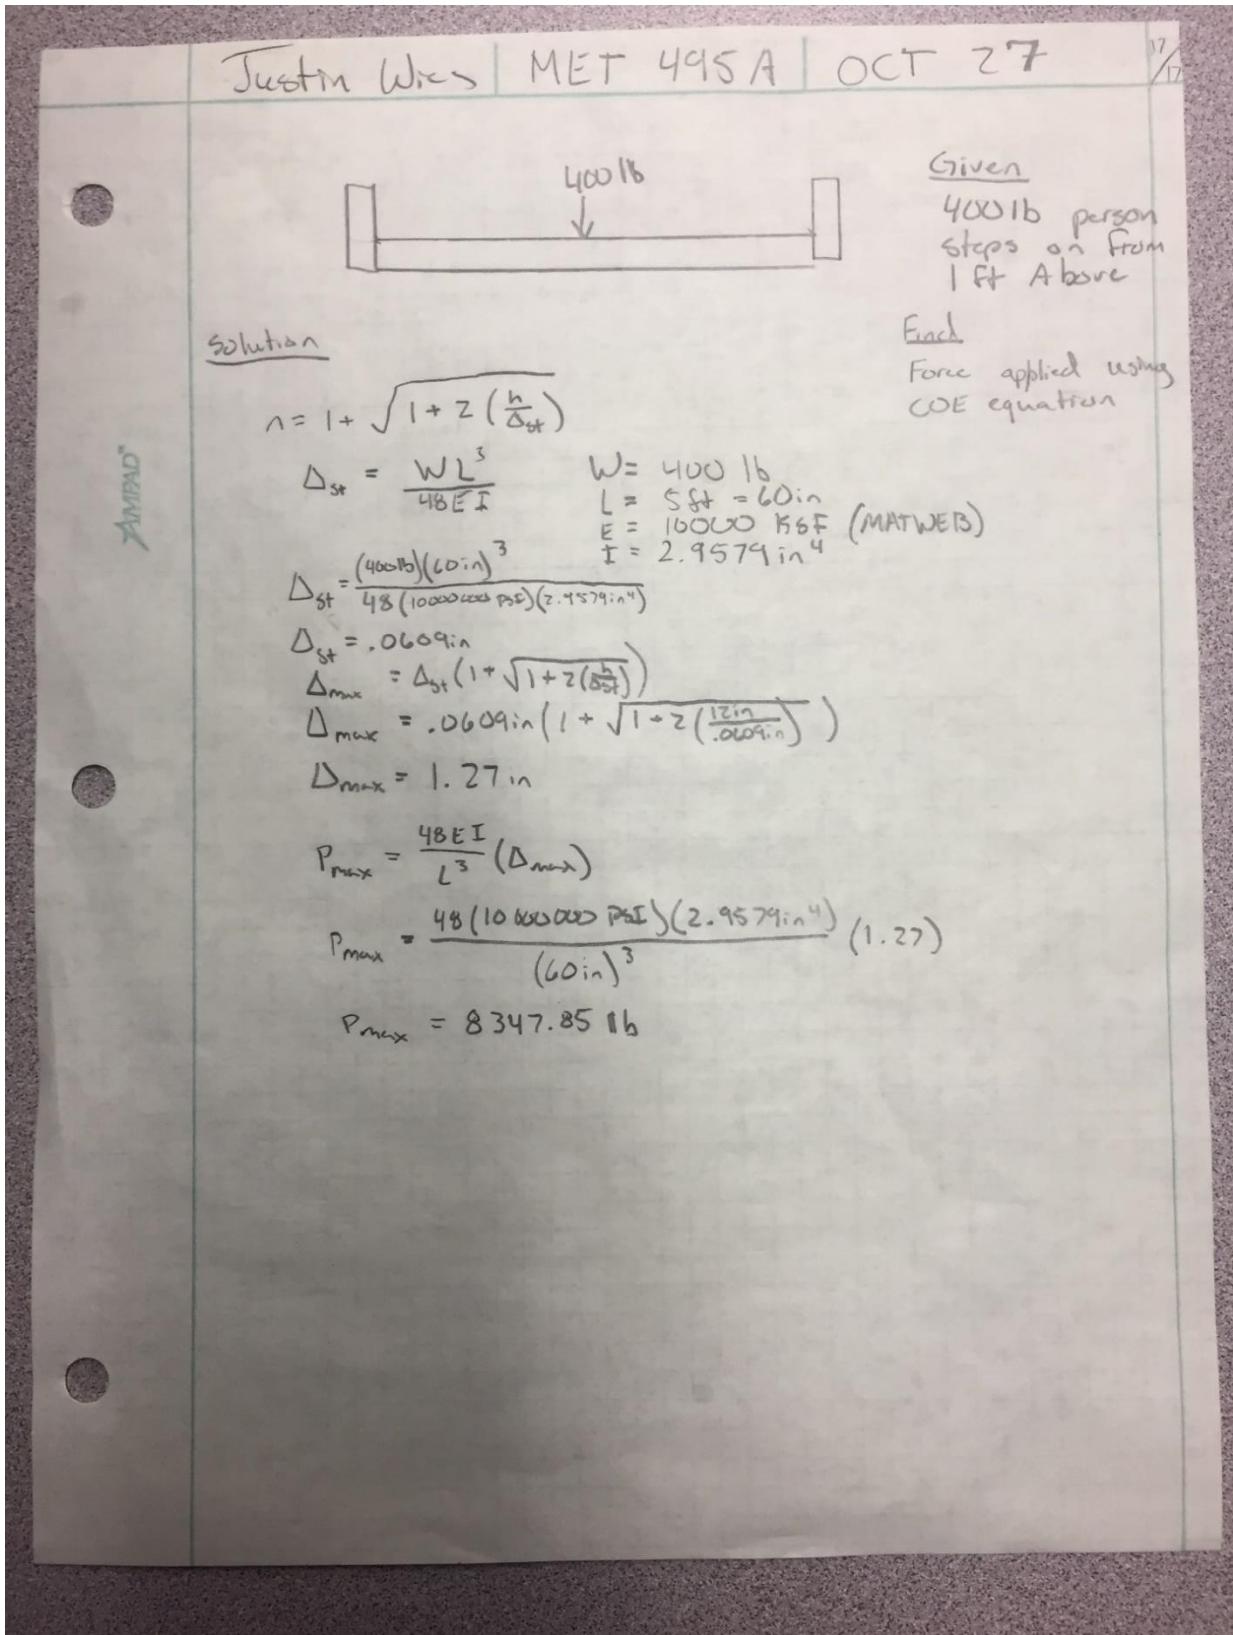 Justin Wies | MET 495A | OCT 27 17/17
400 lb
Given
400 lb person
steps on from
1 ft Above
Find
Force applied using
COE equation
Solution
n = 1 + √(1 + 2(h/Δst))
Δst = WL³/48EI
W = 400 lb
L = 5 ft = 60in
E = 10000 KSI (MATWEB)
I = 2.9579 in⁴
Δst = (400lb)(60in)³/48(10000000 PSI)(2.9579in⁴)
Δst = .0609in
Δmax = Δst(1 + √(1 + 2(h/Δst)))
Δmax = .0609in(1 + √(1 + 2(12in/.0609in)))
Δmax = 1.27in
Pmax = 48EI/L³ (Δmax)
Pmax = 48(10000000 PSI)(2.9579in⁴)/(60in)³ (1.27)
Pmax = 8347.85 lb
AMPAD™